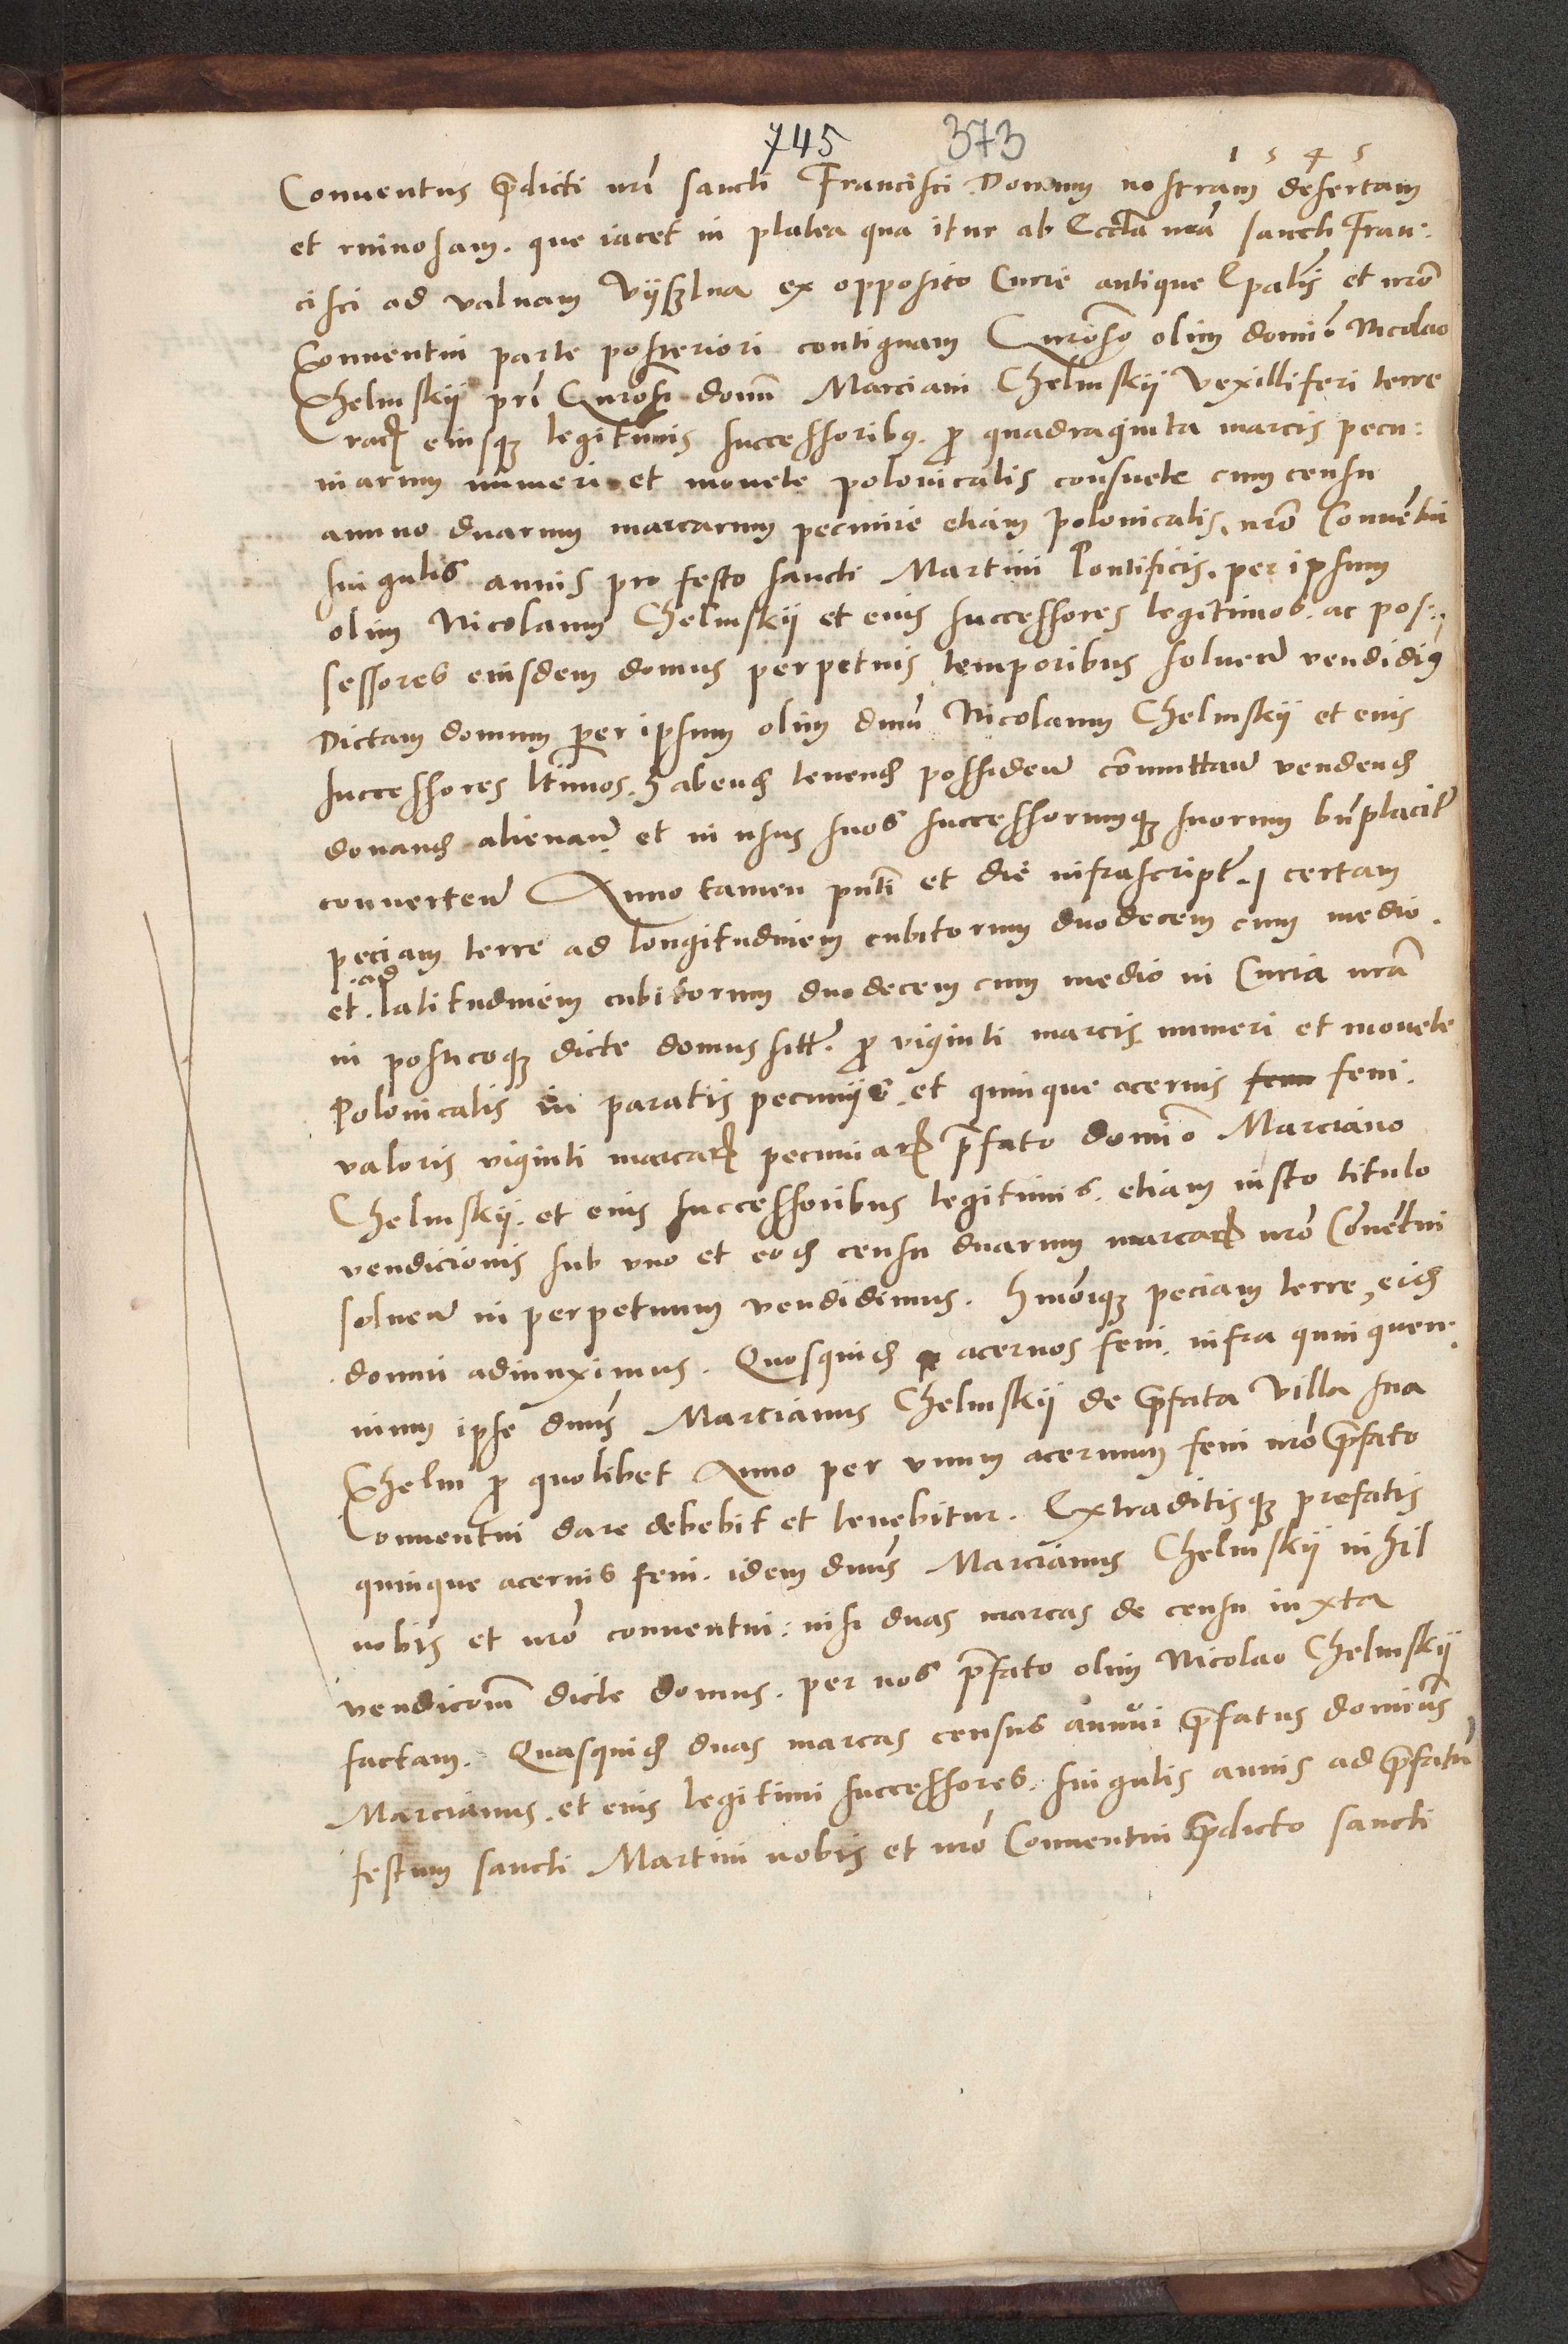 745 373
1 5 4 5
Conuentus p̄dicti nrī sancti Francisci Domum nostram desertam
et ruinosam. que iacet in platea qua itur ab Eccl̄a nrā sancti Fran:
cisci ad valuam Vyszlna ex opposito Curie antique Ep̄alis et nrō
Conuentui parte posteriori contiguam Gn̄roso olim domīo Nicolao
Chelmskÿ prī Gn̄rosi domī Marciani Chelmskÿ Vexilliferi terre
Crac̄ eiusq̧ legitimis successoribꝰ. p̄ quadraginta marcis pecu:
niarum numeri et monete polonicalis consuete cum censu
annuo duarum marcarum pecunie etiam polonicalis, nrō Conuētui
singulis annis pro festo sancti Martini Pontificis. per ipsum
olim Nicolaum Chelmskÿ et eius successores legitimos. ac pos:
sessores eiusdem domus perpetuis temporibus soluen̄ vendidiꝰ
Dictam domum per ipsum olim dnm̄ Nicolaum Chelmskÿ et eius
successores ltīmos. habend̄ tenend̄ possiden̄ com̄utan̄ vendend̄
donand̄ alienan̄ et in usus suos successorumq̧ suorum bn̄placit̄
conuerten̄ Anno tamen pn̄ti et die infrascript̄. certam
peciam terre ad longitudinem cubitorum duodecem cum medio.
et ad latitudinem cubitorum duodecem cum medio in Curia nrā
in posticoq̧ dicte domus sitt̄. p̄ viginti marcis numeri et monete
Polonicalis in paratis pecunÿs. et quinque aceruis feni.
valoris viginti marcarꝝ pecuniarꝝ p̄fato domīo Marciano
Chelmskÿ. et eius successoribus legitimis. etiam iusto titulo
vendicionis sub vno et eod̄ censu duarum marcarꝝ nrō Conuētui
soluen̄ in perpetuum vendidimus. Hmōiq̧ peciam terre, eid̄
domui adiunximus. Quosquid̄ aceruos feni. infra quinquen:
nium ipse dn̄us Marcianus Chelmskÿ de p̄fata Villa sua
Chelm p̄ quolibet Anno per vnum aceruum feni nrō p̄fato
Conuentui dare debebit et tenebitur. Extraditisq̧ prefatis
quinque aceruis feni. idem dn̄us Marcianus Chelmskÿ nihil
nobis et nrō conuentui: nisi duas marcas de censu iuxta
vendicōm̄ dicte domus. per nos p̄fato olim Nicolao Chelmskÿ
factam. Quasquid̄ duas marcas census annui p̄fatus domin̄us
Marcianus. et eius legitimi successores. singulis annis ad p̄fatū
festum sancti Martini nobis et nrō Conuentui p̄dicto sancti